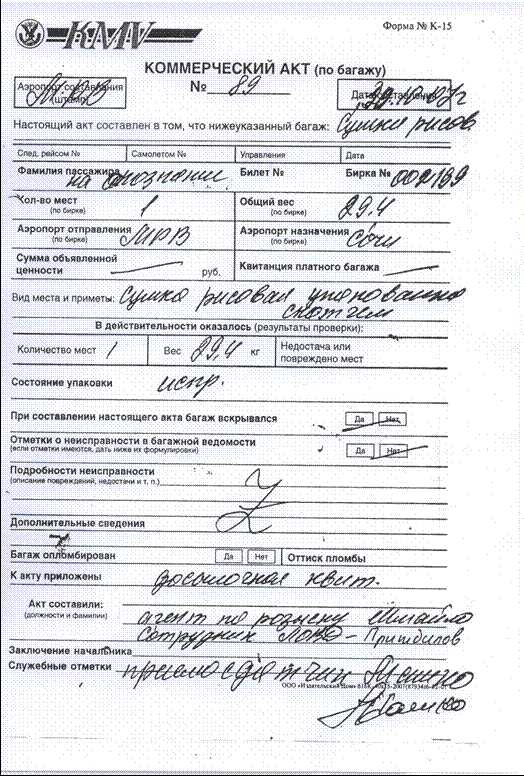 Форма № К-15
KMV
AVIA
КОММЕРЧЕСКИЙ АКТ (по багажу)
Аэропорт составления
(штамп)
МРВ
№ 89
Дата составления
Настоящий акт составлен в том, что нижеуказанный багаж: Сушка рисов
След. рейсом № Самолетом № Управления Дата
Фамилия пассажира на опознании Билет № Бирка № 002139
Кол-во мест (по бирке) 1 Общий вес (по бирке) 29.4
Аэропорт отправления (по бирке) МРВ Аэропорт назначения (по бирке) Сочи
Сумма объявленной ценности руб. Квитанция платного багажа
Вид места и приметы: сушка рисовая упакованна
скотчем
В действительности оказалось (результаты проверки):
Количество мест 1 Вес 29,4 кг Недостача или повреждено мест
Состояние упаковки испр.
При составлении настоящего акта багаж вскрывался Да Нет
Отметки о неисправности в багажной ведомости Да Нет
(если отметки имеются, дать ниже их формулировки)
Подробности неисправности
(описание повреждений, недостачи и т. п.)
Z
Дополнительные сведения
Багаж опломбирован Да Нет Оттиск пломбы
К акту приложены досылочная квит.
Акт составили: агент по розыску
(должности и фамилии) Сотрудник
Заключение начальника
Служебные отметки приемосдатчик
ООО «Издательский Дом»